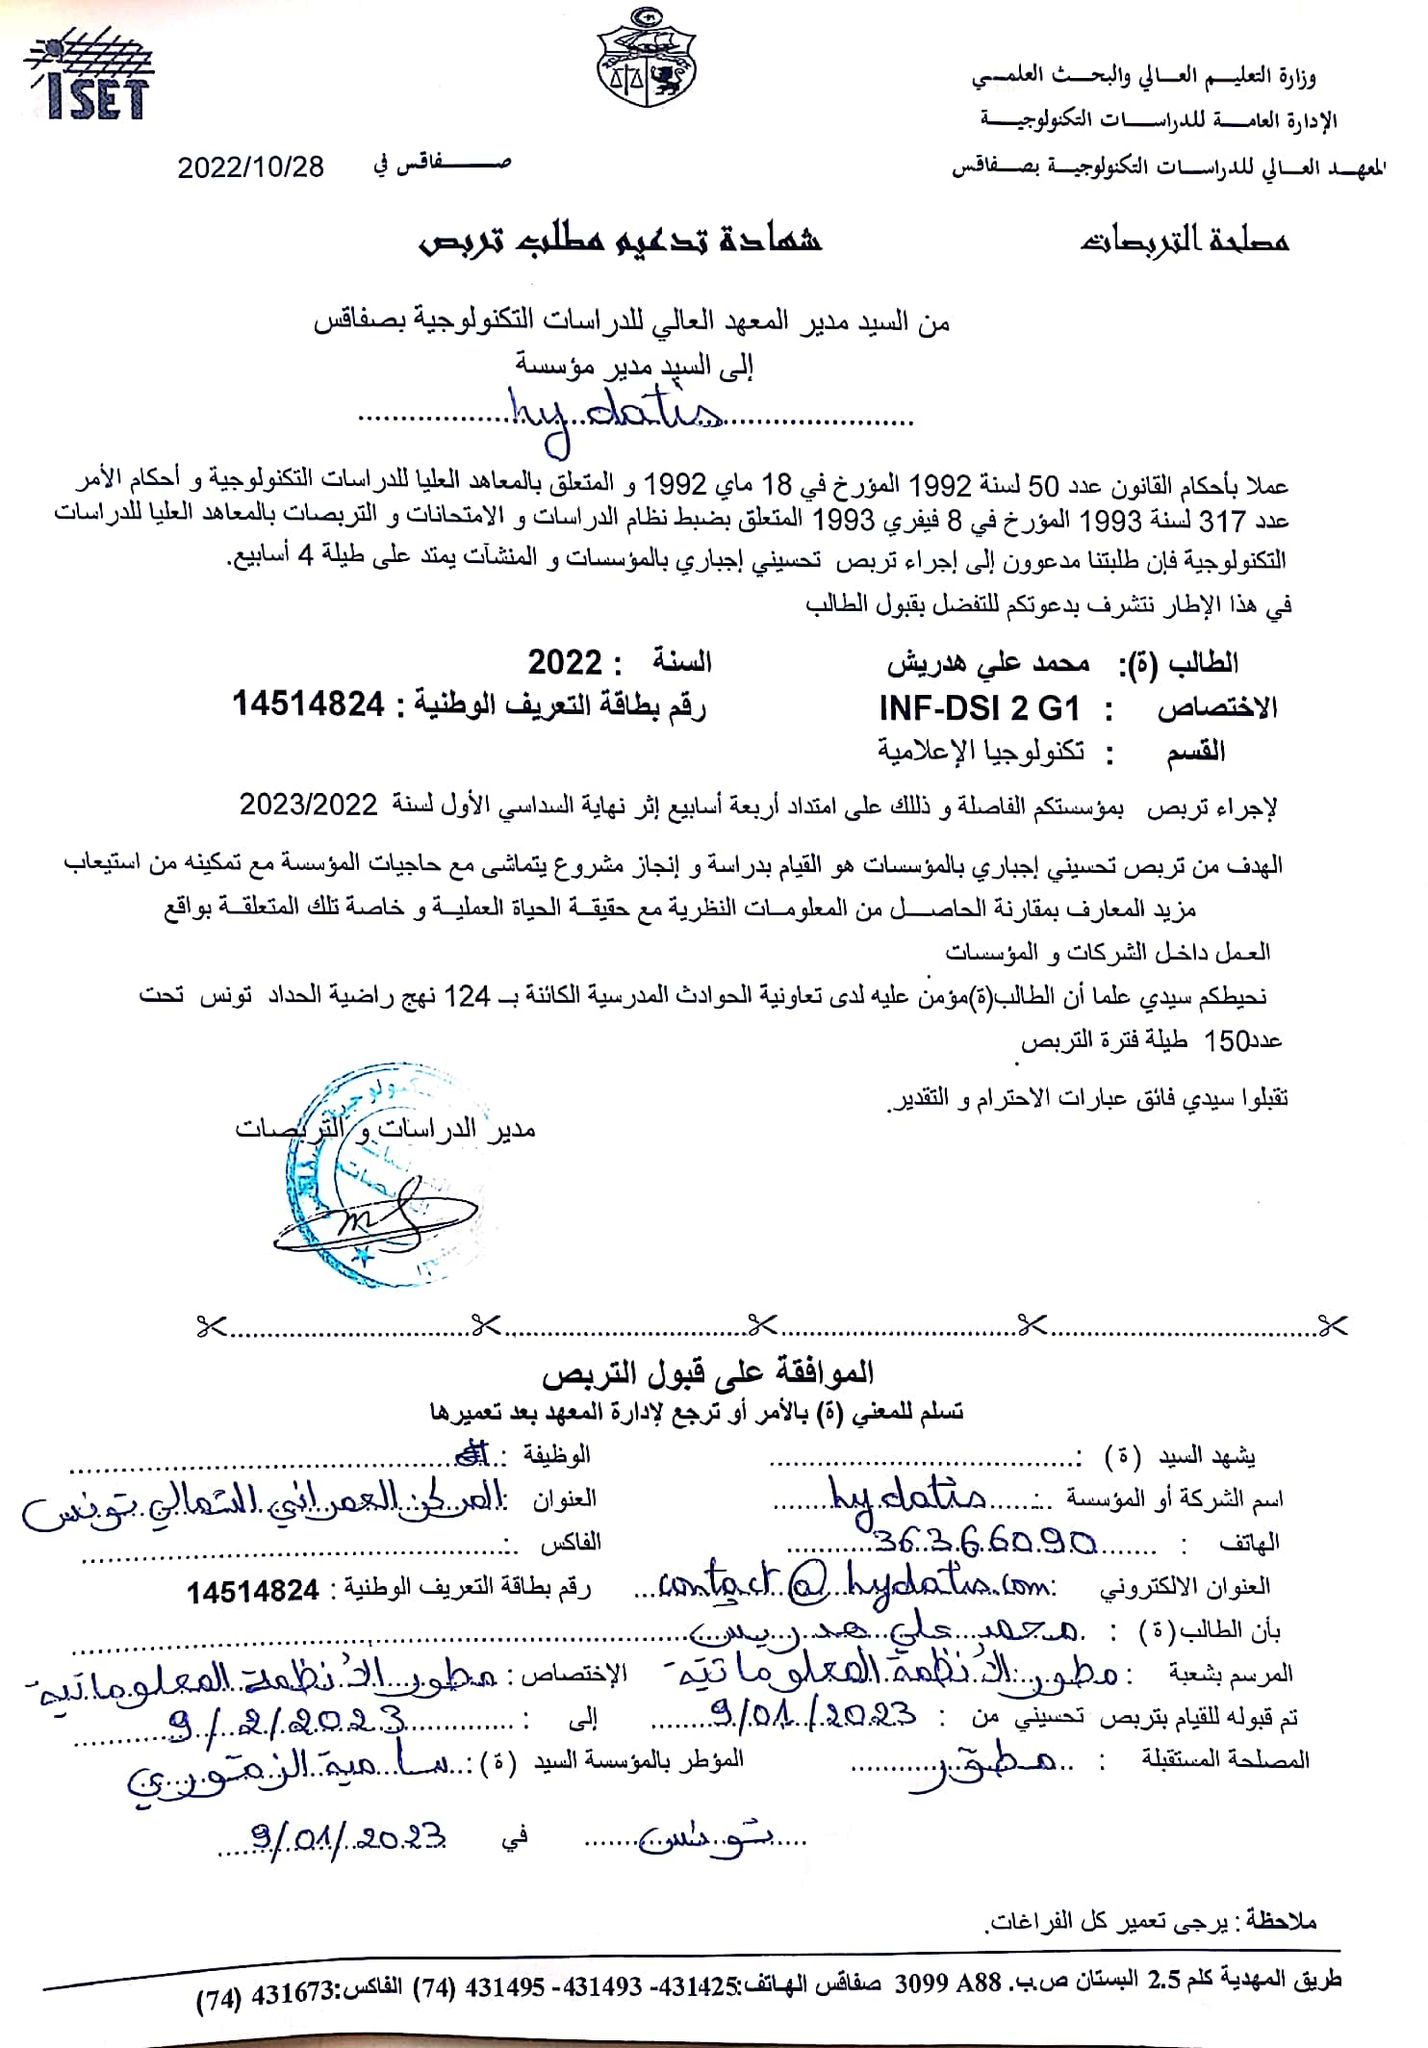 ISET
وزارة التعليم العالي والبحث العلمي
الإدارة العامة للدراسات التكنولوجية
المعهد العالي للدراسات التكنولوجية بصفاقس
صفاقس في 2022/10/28
مصلحة التربصات
شهادة تدعيم مطلب تربص
من السيد مدير المعهد العالي للدراسات التكنولوجية بصفاقس
إلى السيد مدير مؤسسة
hydatis
عملا بأحكام القانون عدد 50 لسنة 1992 المؤرخ في 18 ماي 1992 و المتعلق بالمعاهد العليا للدراسات التكنولوجية و أحكام الأمر
عدد 317 لسنة 1993 المؤرخ في 8 فيفري 1993 المتعلق بضبط نظام الدراسات و الامتحانات و التربصات بالمعاهد العليا للدراسات
التكنولوجية فإن طلبتنا مدعوون إلى إجراء تربص تحسيني إجباري بالمؤسسات و المنشآت يمتد على طيلة 4 أسابيع.
في هذا الإطار نتشرف بدعوتكم للتفضل بقبول الطالب
الطالب (ة): محمد علي هدريش السنة : 2022
الاختصاص : INF-DSI 2 G1 رقم بطاقة التعريف الوطنية : 14514824
القسم : تكنولوجيا الإعلامية
لإجراء تربص بمؤسستكم الفاضلة و ذلك على امتداد أربعة أسابيع إثر نهاية السداسي الأول لسنة 2023/2022
الهدف من تربص تحسيني إجباري بالمؤسسات هو القيام بدراسة و إنجاز مشروع يتماشى مع حاجيات المؤسسة مع تمكينه من استيعاب
مزيد المعارف بمقارنة الحاصل من المعلومات النظرية مع حقيقة الحياة العملية و خاصة تلك المتعلقة بواقع
العمل داخل الشركات و المؤسسات
نحيطكم سيدي علما أن الطالب(ة)مؤمن عليه لدى تعاونية الحوادث المدرسية الكائنة بـ 124 نهج راضية الحداد تونس تحت
عدد150 طيلة فترة التربص
تقبلوا سيدي فائق عبارات الاحترام و التقدير.
مدير الدراسات و التربصات
الموافقة على قبول التربص
تسلم للمعني (ة) بالأمر أو ترجع لإدارة المعهد بعد تعميرها
يشهد السيد (ة) : الوظيفة :
اسم الشركة أو المؤسسة : hydatis العنوان : المركز العمراني الشمالي بتونس
الهاتف : 36366090 الفاكس :
العنوان الالكتروني : contact@hydatis.com رقم بطاقة التعريف الوطنية : 14514824
بأن الطالب(ة) : محمد علي هدريس
المرسم بشعبة : مطور الأنظمة المعلوماتية الإختصاص : مطور الأنظمة المعلوماتية
تم قبوله للقيام بتربص تحسيني من : 9/01/2023 إلى : 9/2/2023
المصلحة المستقبلة : مطوّر المؤطر بالمؤسسة السيد (ة) : سامية الزمتوري
تونس في 9/01/2023
ملاحظة : يرجى تعمير كل الفراغات.
طريق المهدية كلم 2.5 البستان ص.ب. 3099 A88 صفاقس الهاتف:431425- 431493- 431495 (74) الفاكس:431673 (74)